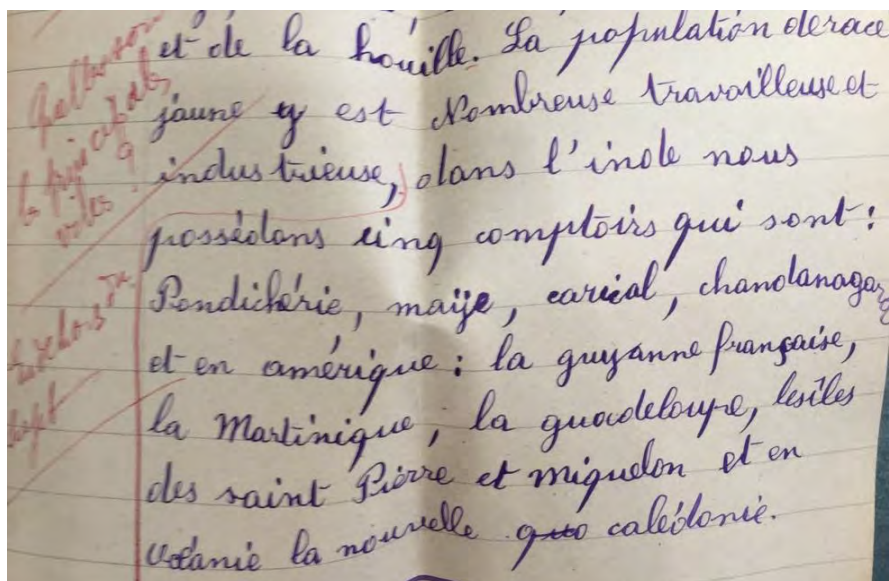 et de la houille. La population de race
jaune y est Nombreuse travailleuse et
industrieuse, dans l'inde nous
possédons cinq comptoirs qui sont :
Pondichérie, maije, carical, chandanagor
et en amérique : la guyanne française,
la Martinique, la guadeloupe, les îles
des saint Pierre et miquelon et en
océanie la nouvelle calédonie.
les principales
villes ?